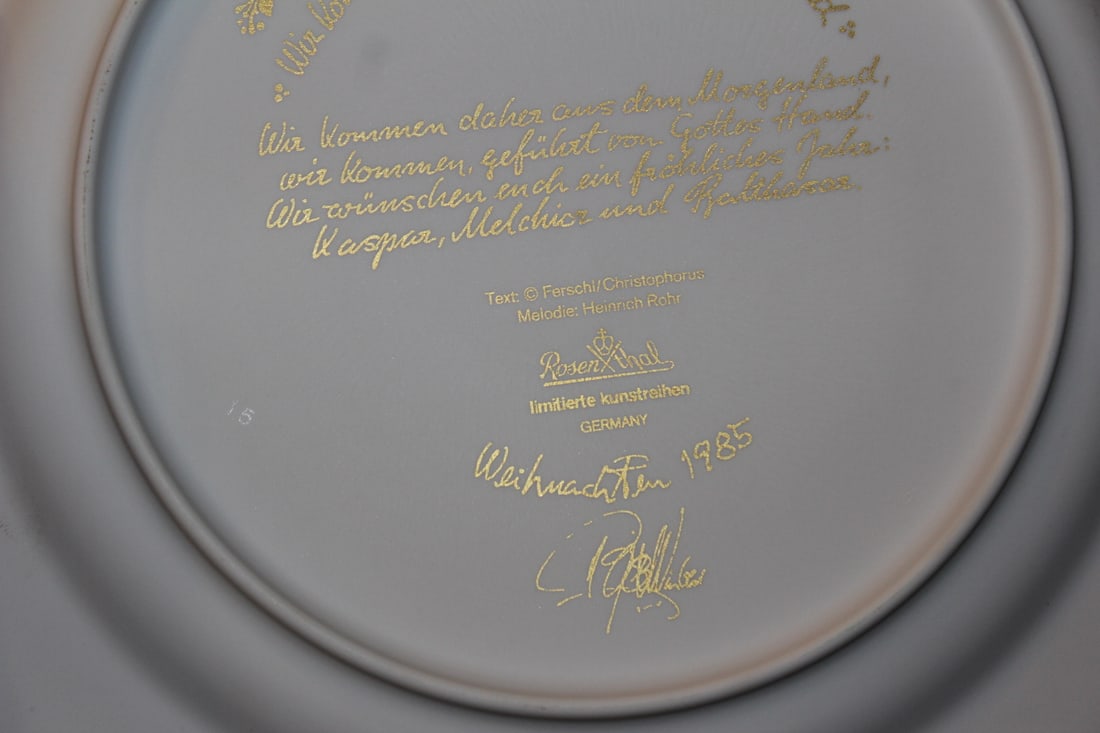 Wir Ko
Wir kommen daher aus dem Morgenland,
wir kommen, geführt von Gottes Hand.
Wir wünschen euch ein fröhliches Jahr:
Kaspar, Melchior und Balthasar.
Text: © Ferschl/Christophorus
Melodie: Heinrich Rohr
Rosenthal
limitierte kunstreihen
GERMANY
Weihnachten 1985